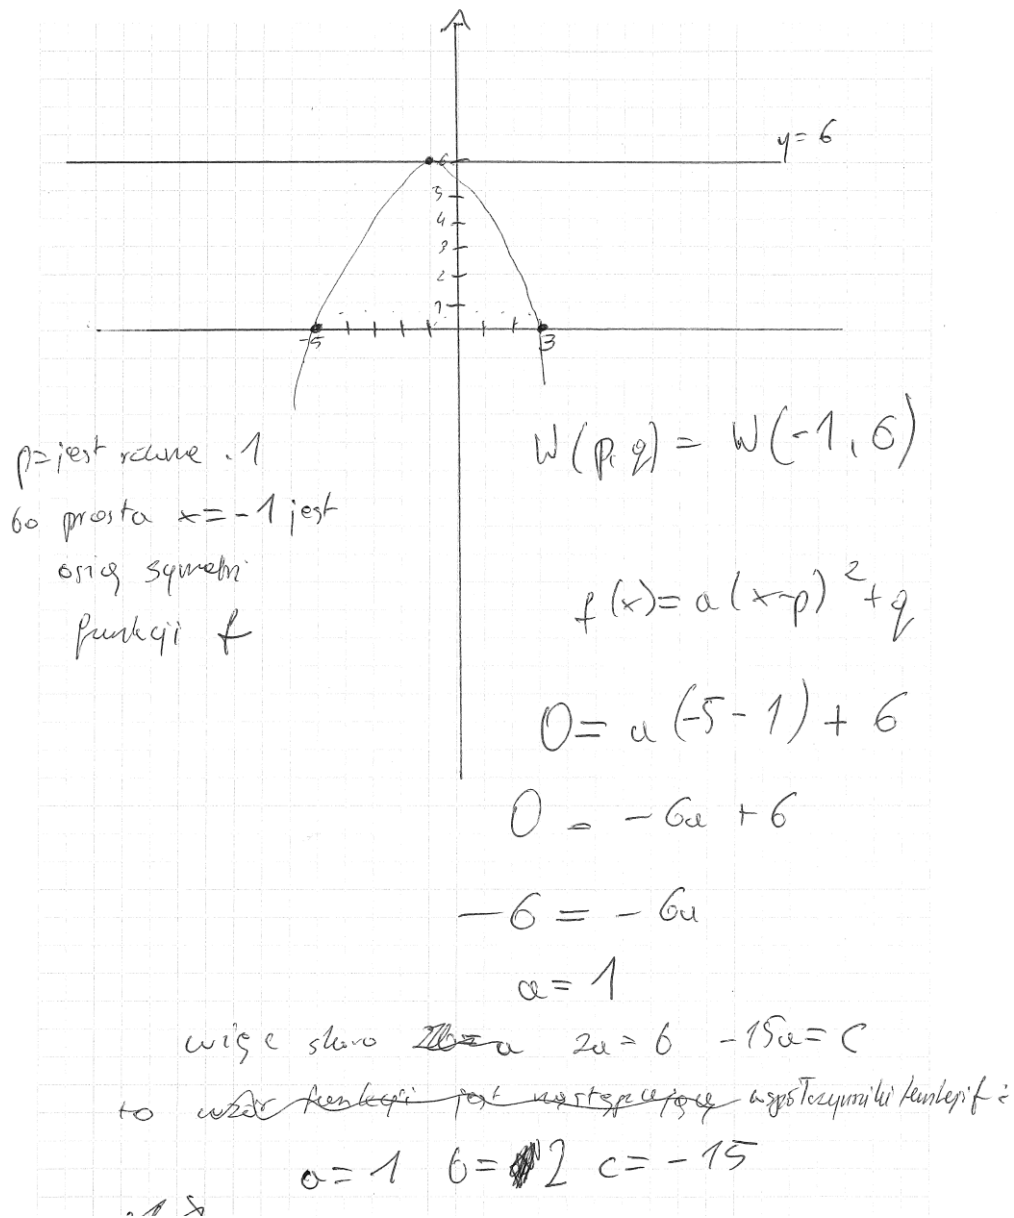 y=6
6
5
4
3
2
1
-5
3
W(p, q) = W(-1, 6)
p=jest równe -1
bo prosta x=-1 jest
osią symetri
funkcji f
f(x)=a(x-p)²+q
0=a(-5-1)+6
0=-6a+6
-6=-6a
a=1
więc skoro 2a=b -15a=c
to wzór funkcji jest następujący współczynniki funkcji f:
a=1 b=2 c=-15